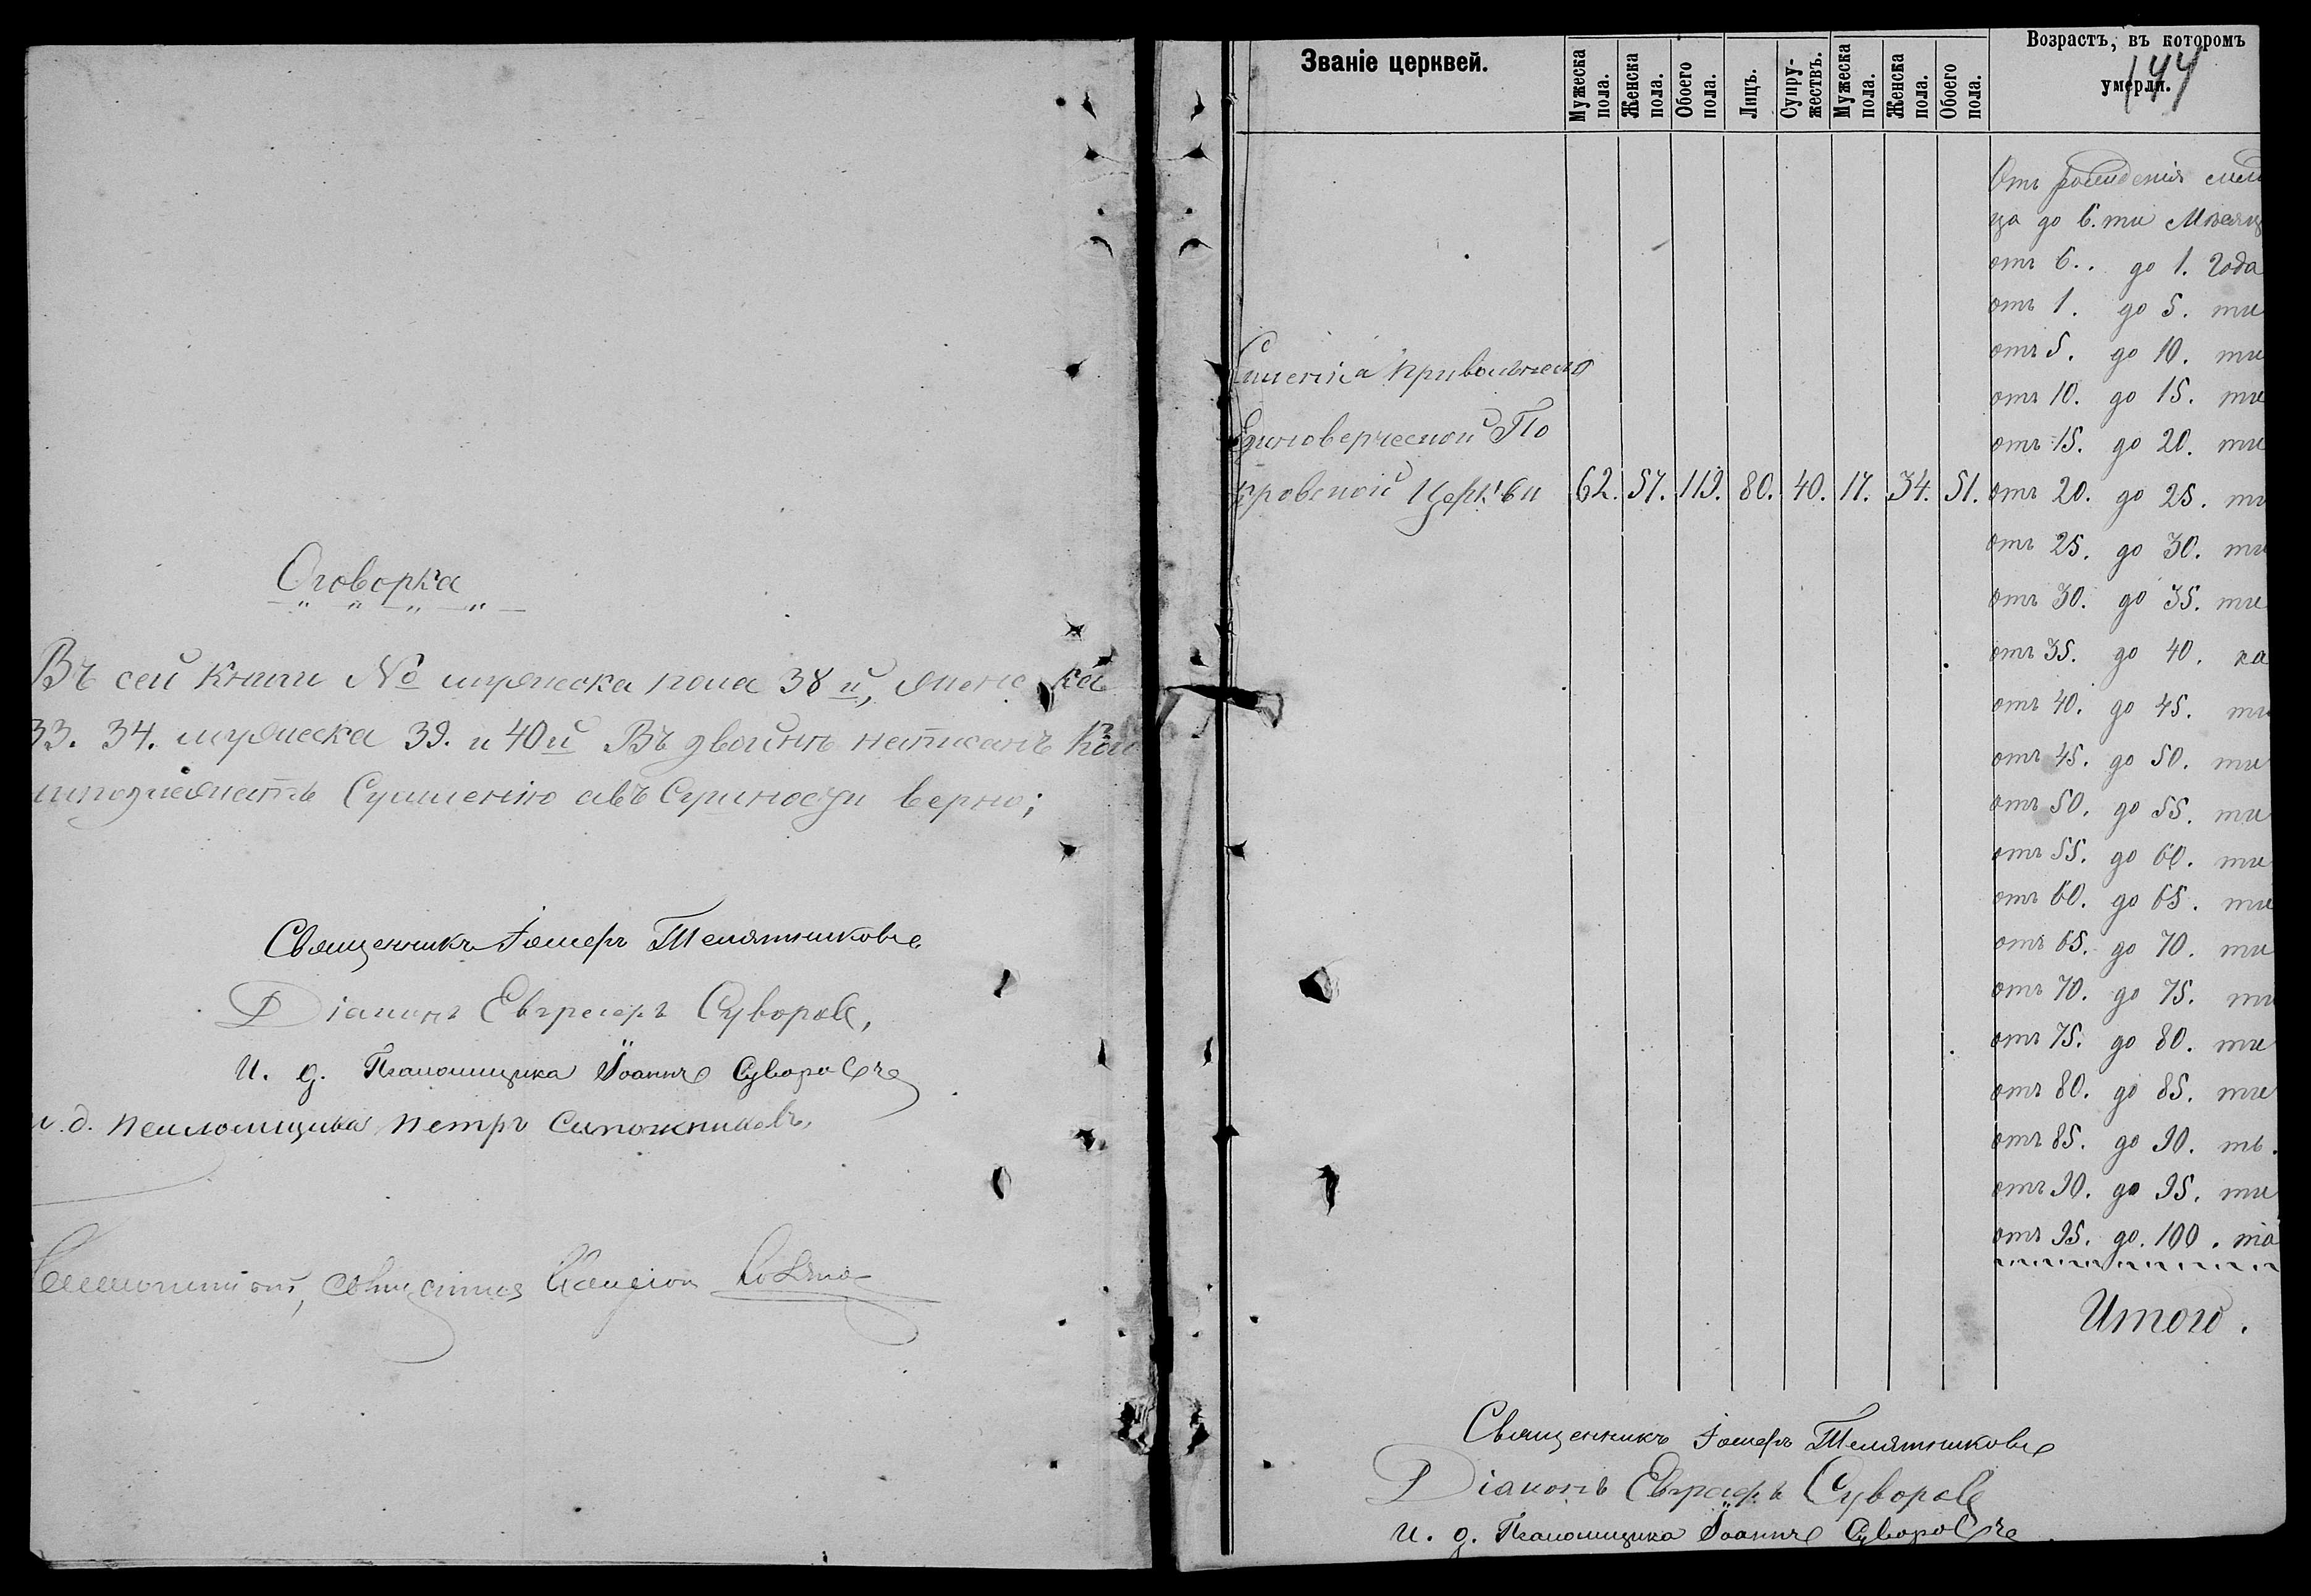 Оговорка
Въ сей книги № мужеска пола 38й, женс ка
33. 34. мужеска 39. и 40й Въ двойнѣ написанъ
верно;
Священникъ Іосифъ Телятниковъ
Діаконъ Евграфъ Суворовъ,
И. д. Псаломщика Іоаннъ Суворовъ
и. д. псаломщика Петръ Сапожниковъ
144
Званіе церквей.
Мужеска пола.
Женска пола.
Обоего пола.
Лицъ.
Супру-жествъ.
Мужеска пола.
Женска пола.
Обоего пола.
Возрастъ, въ которомъ
умерли.
Отъ рожденія
ца до 6.ти Мѣсяц
отъ 6. . до 1. года
отъ 1. до 5. ти
отъ 5. до 10. ти
отъ 10. до 15. ти
отъ 15. до 20. ти
Единоверческой По
кровской Церкви 62. 57. 119. 80. 40. 17. 34. 51. отъ 20. до 25. ти
отъ 25. до 30. ти
отъ 30. до 35. ти
отъ 35. до 40. ка
отъ 40. до 45. ти
отъ 45. до 50. ти
отъ 50. до 55. ти
отъ 55. до 60. ти
отъ 60. до 65. ти
отъ 65. до 70. ти
отъ 70. до 75. ти
отъ 75. до 80. ти
отъ 80. до 85. ти
отъ 85. до 90. ть.
отъ 90. до 95. ти
отъ 95. до. 100. та
Итого.
Священникъ Іосифъ Телятниковъ
Діаконъ Евграфъ Суворовъ
И. д. Псаломщика Іоаннъ Суворовъ